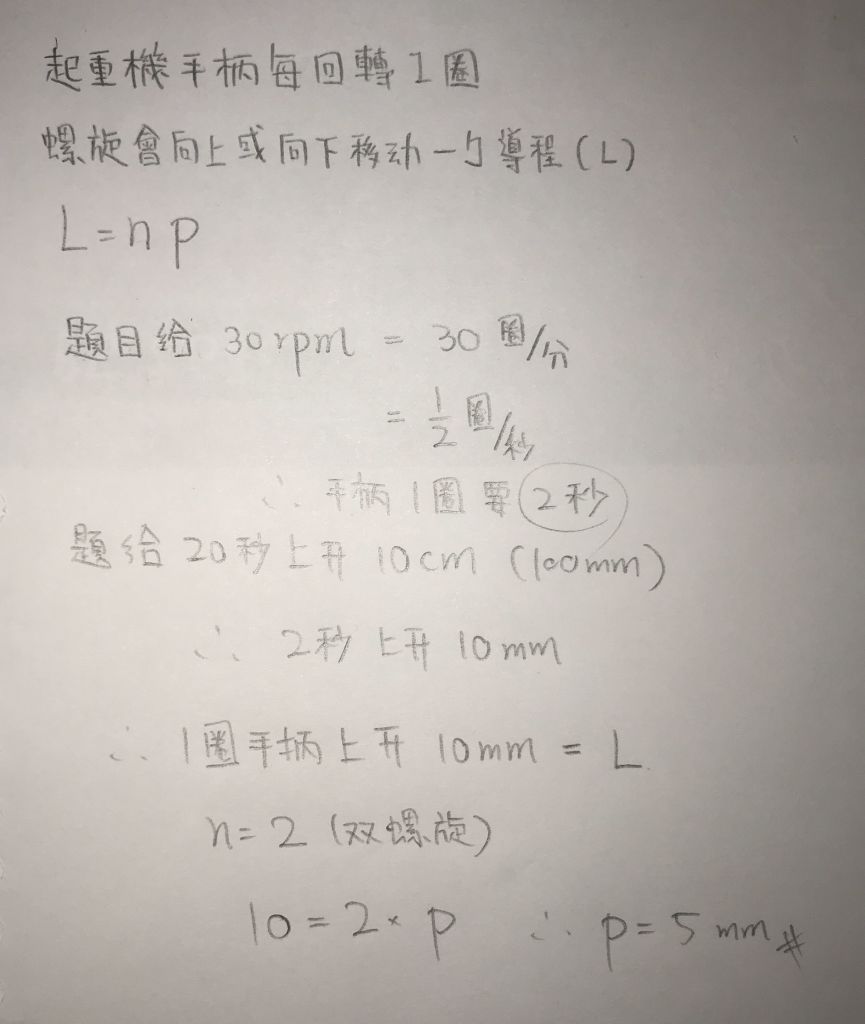 起重機手柄每回轉1圈
螺旋會向上或向下移动一个導程(L)
L=np
題目給 30rpm = 30 圈/分
= 1/2 圈/秒
∴ 手柄1圈要 2秒
題給 20秒上升 10cm (100mm)
∴ 2秒上升 10mm
∴ 1圈手柄上升 10mm = L
n=2 (双螺旋)
10=2×p ∴ p=5mm #